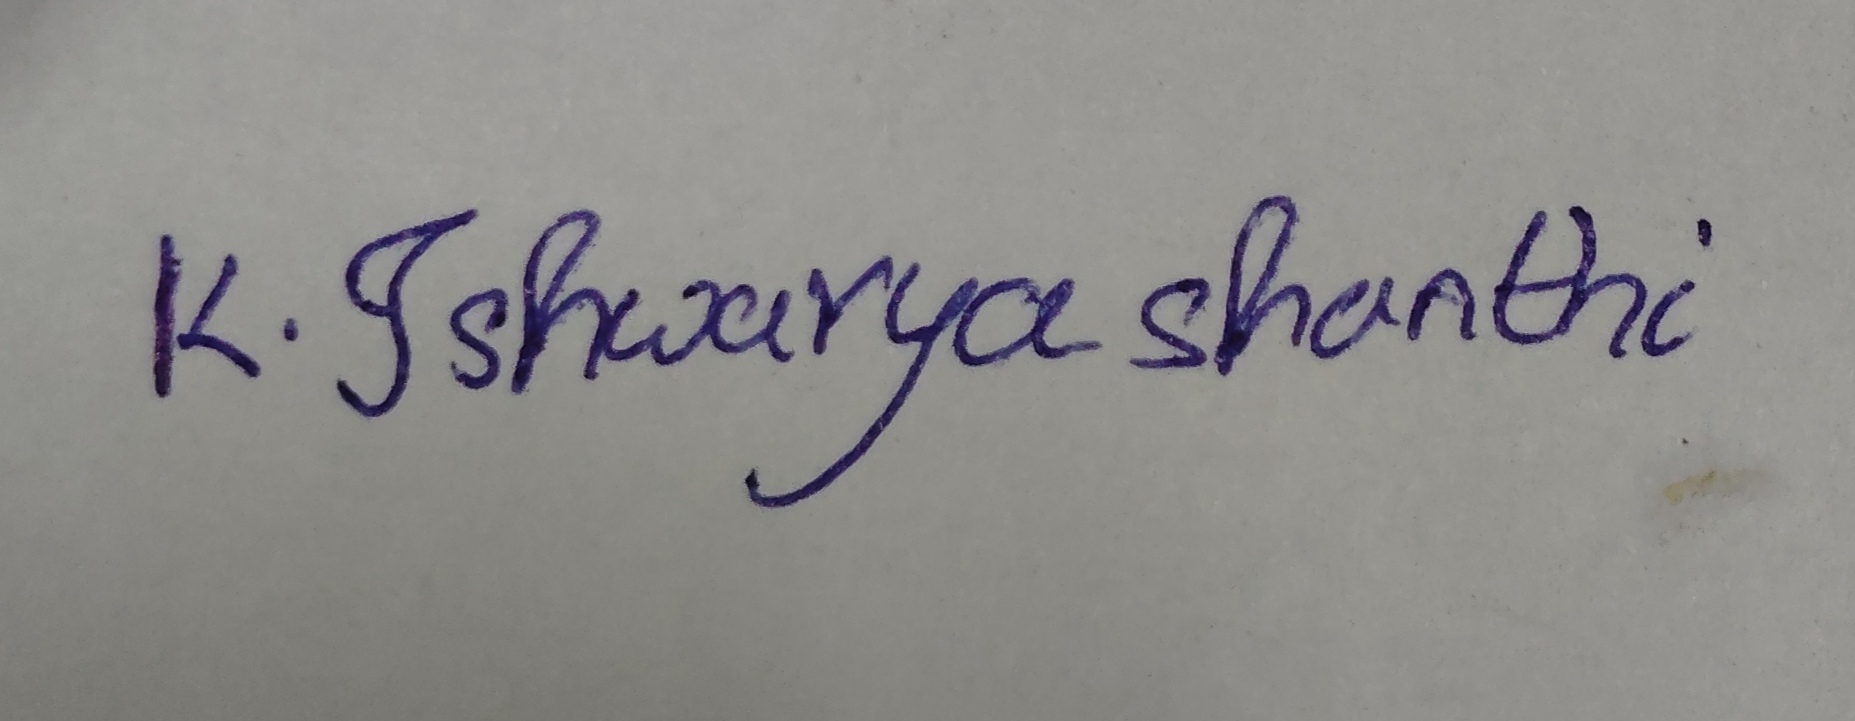 K. Ishwarya shanthi